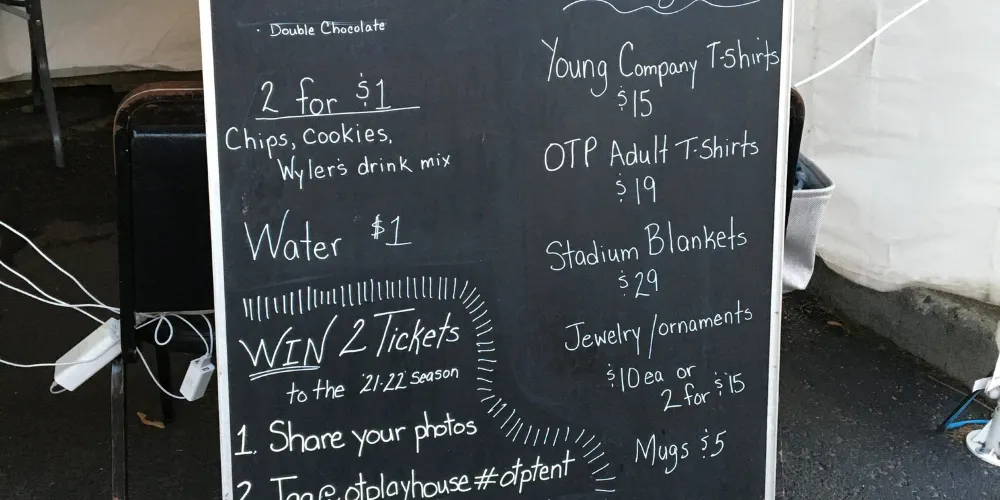 · Double Chocolate
2 for $1
Chips, Cookies,
Wyler's drink mix
Water $1
WIN 2 Tickets
to the '21-22' Season
1. Share your photos
2. Tag @otplayhouse #otptent
Young Company T-Shirts
$15
OTP Adult T-Shirts
$19
Stadium Blankets
$29
Jewelry/ornaments
$10 ea or
2 for $15
Mugs $5